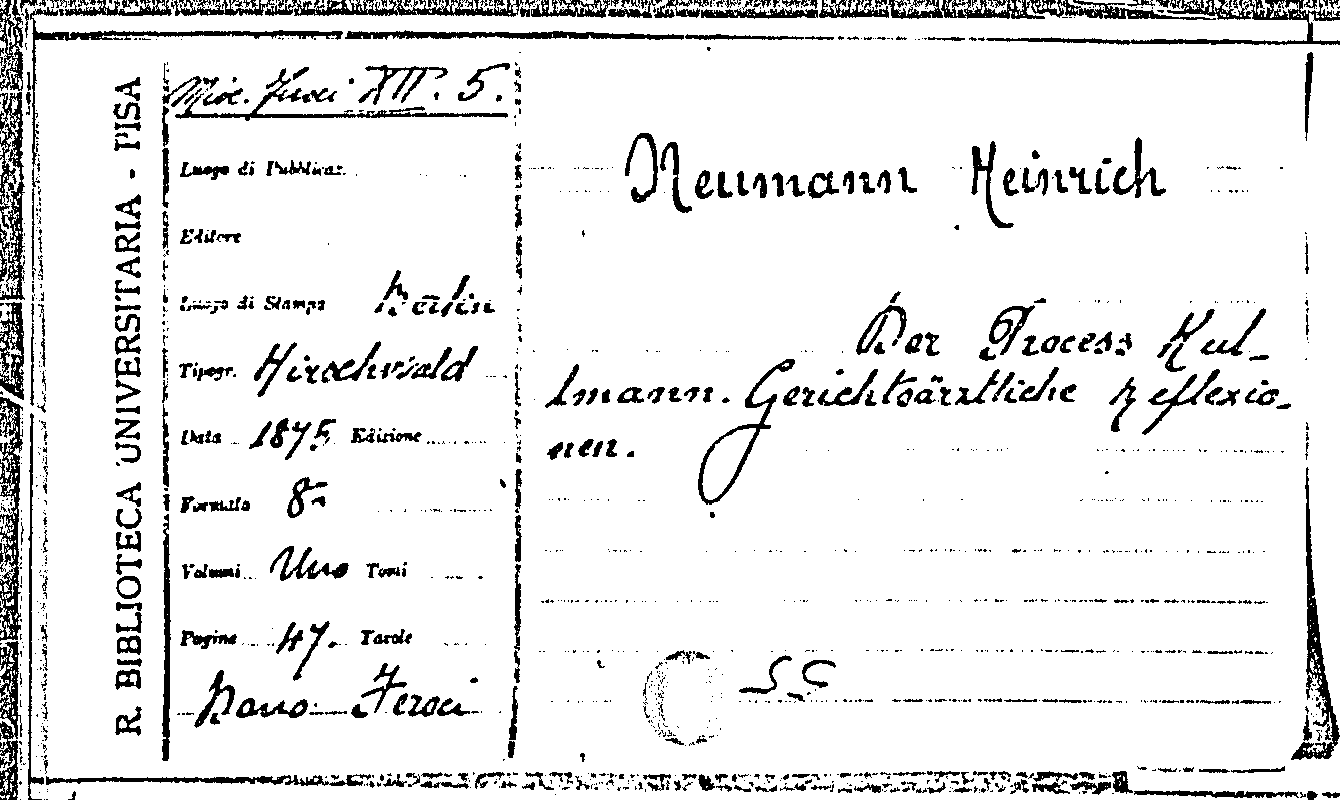 R. BIBLIOTECA UNIVERSITARIA - PISA
Misc. Feroci XII. 5.
Luogo di Pubblicaz.
Editore
Luogo di Stampa Berlin
Tipogr. Hirschwald
Data 1875 Edizione
Formato 8°
Volumi Uno Tomi
Pagine 47. Tavole
Dono Feroci
Neumann Heinrich
Der Process Kul-
lmann. Gerichtsärztliche Reflexio-
nen.